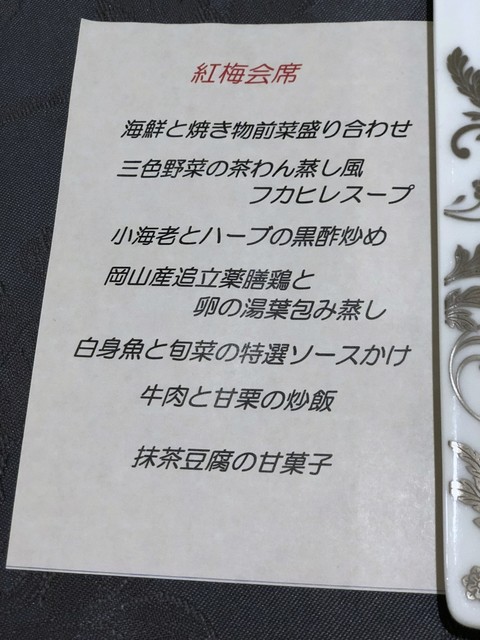 紅梅会席
海鮮と焼き物前菜盛り合わせ
三色野菜の茶わん蒸し風
フカヒレスープ
小海老とハーブの黒酢炒め
岡山産追立薬膳鶏と
卵の湯葉包み蒸し
白身魚と旬菜の特選ソースかけ
牛肉と甘栗の炒飯
抹茶豆腐の甘菓子